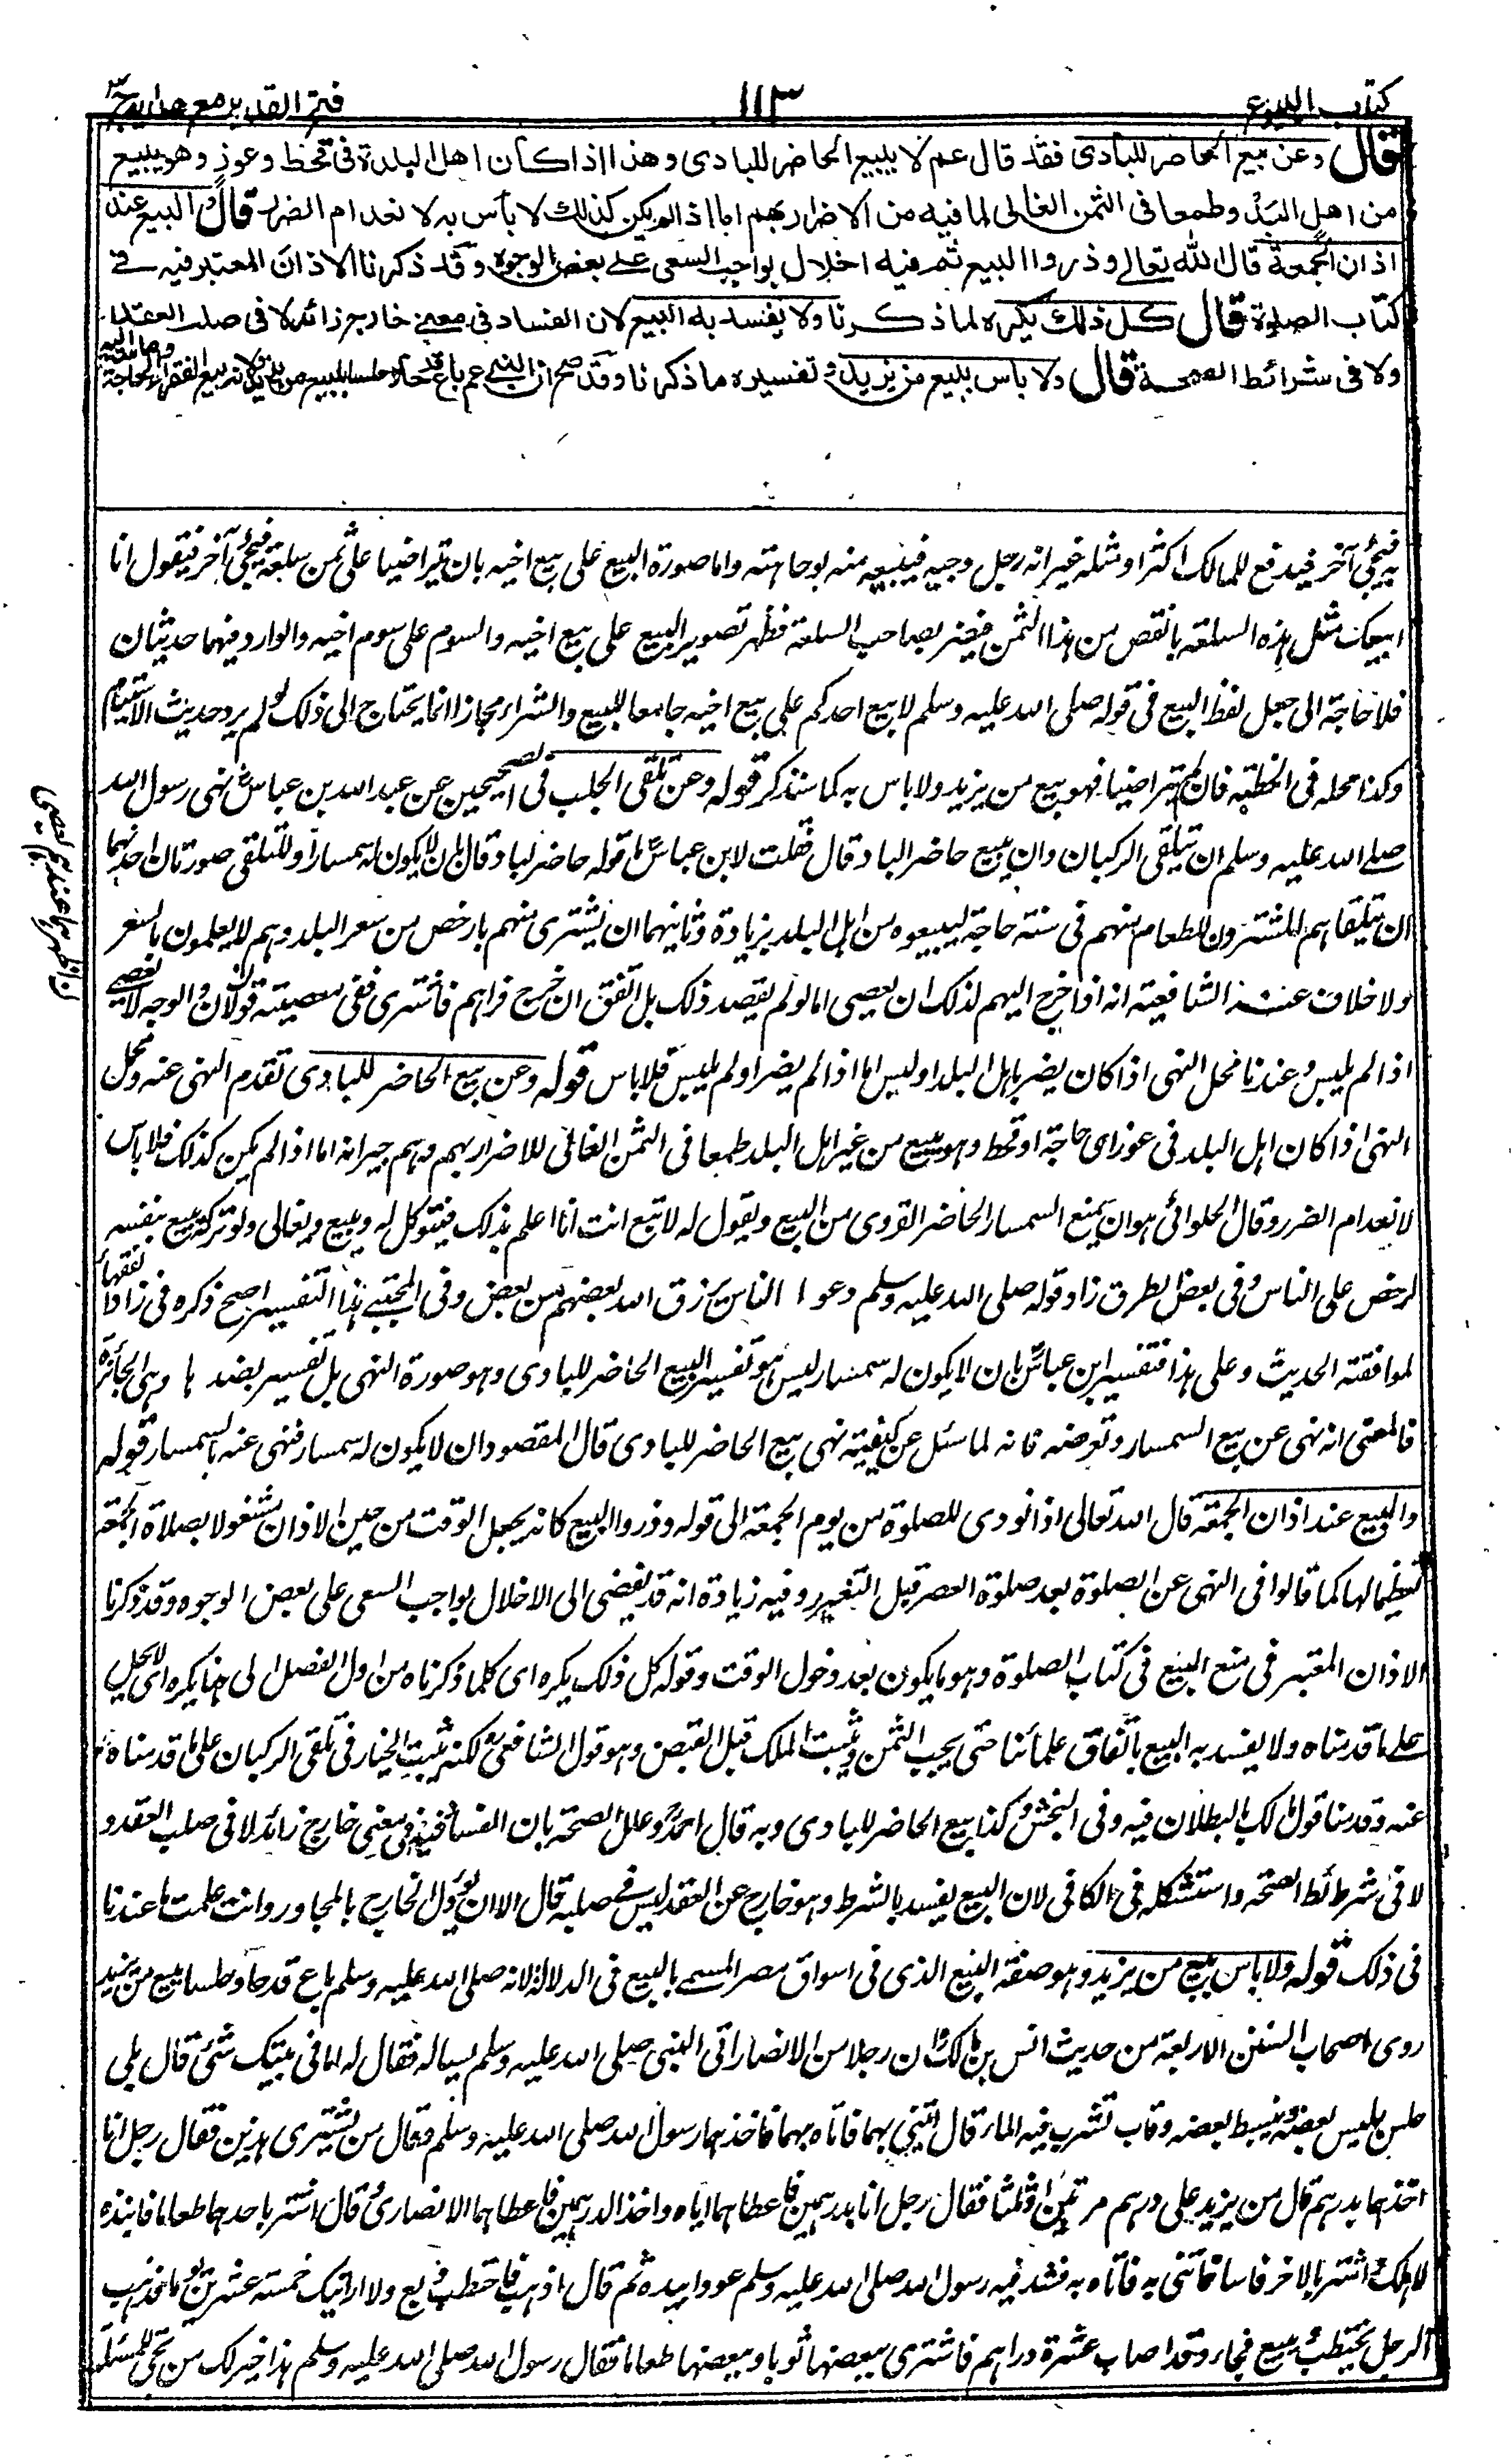 كتاب البيوع
١١٣
فتح القدير مع هدايه ج٣
قال وعن بيع الحاضر للبادى فقد قال عم لا يبيع الحاضر للبادى وهذا اذا كان اهل البلدة فى قحط وعوز وهو يبيع
من اهل البدو طمعا فى الثمن الغالى لما فيه من الاضرار بهم اما اذا لم يكن كذلك لا بأس به لانعدام الضرر قال والبيع عند
اذان الجمعة قال الله تعالى وذروا البيع ثم فيه اخلال بواجب السعى على بعض الوجوه وقد ذكرنا الاذان المعتبر فيه فى
كتاب الصلوة قال كل ذلك يكره لما ذكرنا ولا يفسد به البيع لان الفساد فى معنى خارج زائد لا فى صلب العقد
ولا فى شرائط الصحة قال ولا باس ببيع من يزيد وتفسيره ما ذكرنا وقد صح ان النبى عم باع قدحا وحلسا ببيع من يزيد ولانه بيع الفقراء والحاجة
ماسة اليه
فيجئ آخر فيدفع للمالك اكثر او مثله غير انه رجل وجيه فيبيعه منه لوجاهته واما صورة البيع على بيع اخيه بان يتراضيا على ثمن سلعة فيجئ آخر فيقول انا
ابيعك مثل هذه السلعة بانقص من هذا الثمن فيضر بصاحب السلعة فظهر تصوير البيع على بيع اخيه والسوم على سوم اخيه والوارد فيهما حديثان
فلا حاجة الى جعل لفظ البيع فى قوله صلى الله عليه وسلم لا يبيع احدكم على بيع اخيه جامعا للبيع والشراء مجازا انما يحتاج الى ذلك لو لم يرد حديث الاستيام
وكذا محله فى الخطبة فان لم يتراضيا فهو بيع من يزيد ولا باس به كما سنذكر قوله وعن تلقى الجلب فى الصحيحين عن عبد الله بن عباس رض نهى رسول الله
صلى الله عليه وسلم ان تتلقى الركبان وان يبيع حاضر لباد قال فقلت لابن عباس رض ما قوله حاضر لباد قال بان لا يكون له سمسارا وللتلقى صورتان احدهما
ان يتلقاهم المشترون للطعام منهم فى سنة حاجة ليبيعوه من اهل البلد بزيادة وثانيهما ان يشترى منهم بارخص من سعر البلد وهم لا يعلمون بالسعر
ولا خلاف عند الشافعية انه اذا خرج اليهم لذلك ان يعصى اما لو لم يقصد ذلك بل اتفق ان خرج فراهم فاشترى ففى معصيته قولان والوجه لا يعصى
اذا لم يلبس وعندنا محل النهى اذا كان يضر باهل البلد او لبس اما اذا لم يضر او لم يلبس فلا باس قوله وعن بيع الحاضر للبادى تقدم النهى عنه ومحل
النهى اذا كان اهل البلد فى عوز اى حاجة او قحط وهو يبيع من غير اهل البلد طمعا فى الثمن الغالى للاضرار بهم وهم جيرانه اما اذا لم يكن كذلك فلا باس
لانعدام الضرر وقال الحلوائى هو ان يمنع السمسار الحاضر القروى من البيع ويقول له لا تبع انت انا اعلم بذلك فيتوكل له ويبيع ويغالى ولو تركه يبيع بنفسه
لرخص على الناس وفى بعض الطرق زاد قوله صلى الله عليه وسلم دعوا الناس يرزق الله بعضهم من بعض وفى المجتبى هذا التفسير اصح ذكره فى زاد الفقهاء
لموافقة الحديث وعلى هذا فتفسير ابن عباس رض بان لا يكون له سمسار ليس هو تفسير البيع الحاضر للبادى وهو صورة النهى بل تفسير بضد ها وهى الجائزة
فالمعنى انه نهى عن بيع السمسار وتعرضه فانه لما سئل عن كيفية نهى بيع الحاضر للبادى قال المقصود ان لا يكون له سمسار فنهى عنه بالسمسار قوله
والبيع عند اذان الجمعة قال الله تعالى اذا نودى للصلوة من يوم الجمعة الى قوله وذروا البيع كانه يجعل الوقت من حين الاذان مشغولا بصلاة الجمعة
تعظيما لها كما قالوا فى النهى عن الصلوة بعد صلوة العصر قبل التغير وفيه زيادة انه قد يفضى الى الاخلال بواجب السعى على بعض الوجوه وقد ذكرنا
الاذان المعتبر فى منع البيع فى كتاب الصلوة وهو ما يكون بعد دخول الوقت وقوله كل ذلك يكره اى كلما ذكرناه من اول الفصل الى هنا يكره اى لا يحل
على ما قدمناه ولا يفسد به البيع باتفاق علمائنا حتى يجب الثمن ويثبت الملك قبل القبض وهو قول الشافعى رح لكنه يثبت الخيار فى تلقى الركبان على ما قدمناه
عنه وقدمنا قول مالك بالبطلان فيه وفى النجش وكذا بيع الحاضر للبادى وبه قال احمد رح وعلل الصحة بان الفساد فيه فى معنى خارج زائد لا فى صلب العقد و
لا فى شرائط الصحة واستشكله فى الكافى لان البيع يفسد بالشرط وهو خارج عن العقد ليس فى صلبه قال الا ان يؤول الخارج بالمجاور وانت علمت ما عندنا
فى ذلك قوله ولا باس ببيع من يزيد وهو صفة البيع الذى فى اسواق مصر المسمى بالبيع فى الدلالة لانه صلى الله عليه وسلم باع قدحا وحلسا ببيع من يزيد
روى اصحاب السنن الاربعة من حديث انس بن مالك رض ان رجلا من الانصار اتى النبى صلى الله عليه وسلم يساله فقال له اما فى بيتك شئ قال بلى
حلس يلبس بعضه ويبسط بعضه وقاب تشرب فيه الماء قال ائتنى بهما فاتاه بهما فاخذهما رسول الله صلى الله عليه وسلم وقال من يشترى هذين فقال رجل انا
اخذهما بدرهم قال من يزيد على درهم مرتين او ثلثا فقال رجل انا بدرهمين فاعطاهما اياه واخذ الدرهمين فاعطاهما الانصارى وقال اشتر باحدهما طعاما فانبذه
لاهلك واشتر بالاخر فاسا فأتنى به فاتاه به فشد فيه رسول الله صلى الله عليه وسلم عودا بيده ثم قال اذهب فاحتطب وبع ولا ارينك خمسة عشر يوما فذهب
الرجل يحتطب ويبيع فجاء وقد اصاب عشرة دراهم فاشترى ببعضها ثوبا وببعضها طعاما فقال رسول الله صلى الله عليه وسلم هذا خير لك من تجئ المسئلة